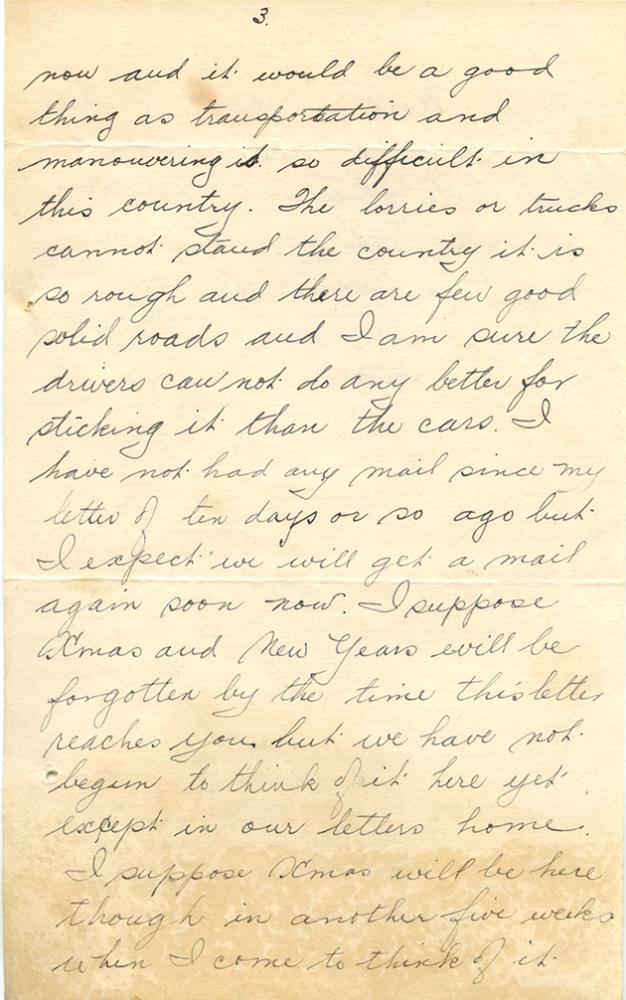 3.
now and it would be a good
thing as transportation and
manouvering is so difficult in
this country. The lorries or trucks
cannot stand the country it is
so rough and there are few good
solid roads and I am sure the
drivers can not do any better for
sticking it than the cars. I
have not had any mail since my
letter of ten days or so ago but
I expect we will get a mail
again soon now. I suppose
Xmas and New Years will be
forgotten by the time this letter
reaches you but we have not
begun to think of it here yet
except in our letters home.
I suppose Xmas will be here
though in another five weeks
when I come to think of it